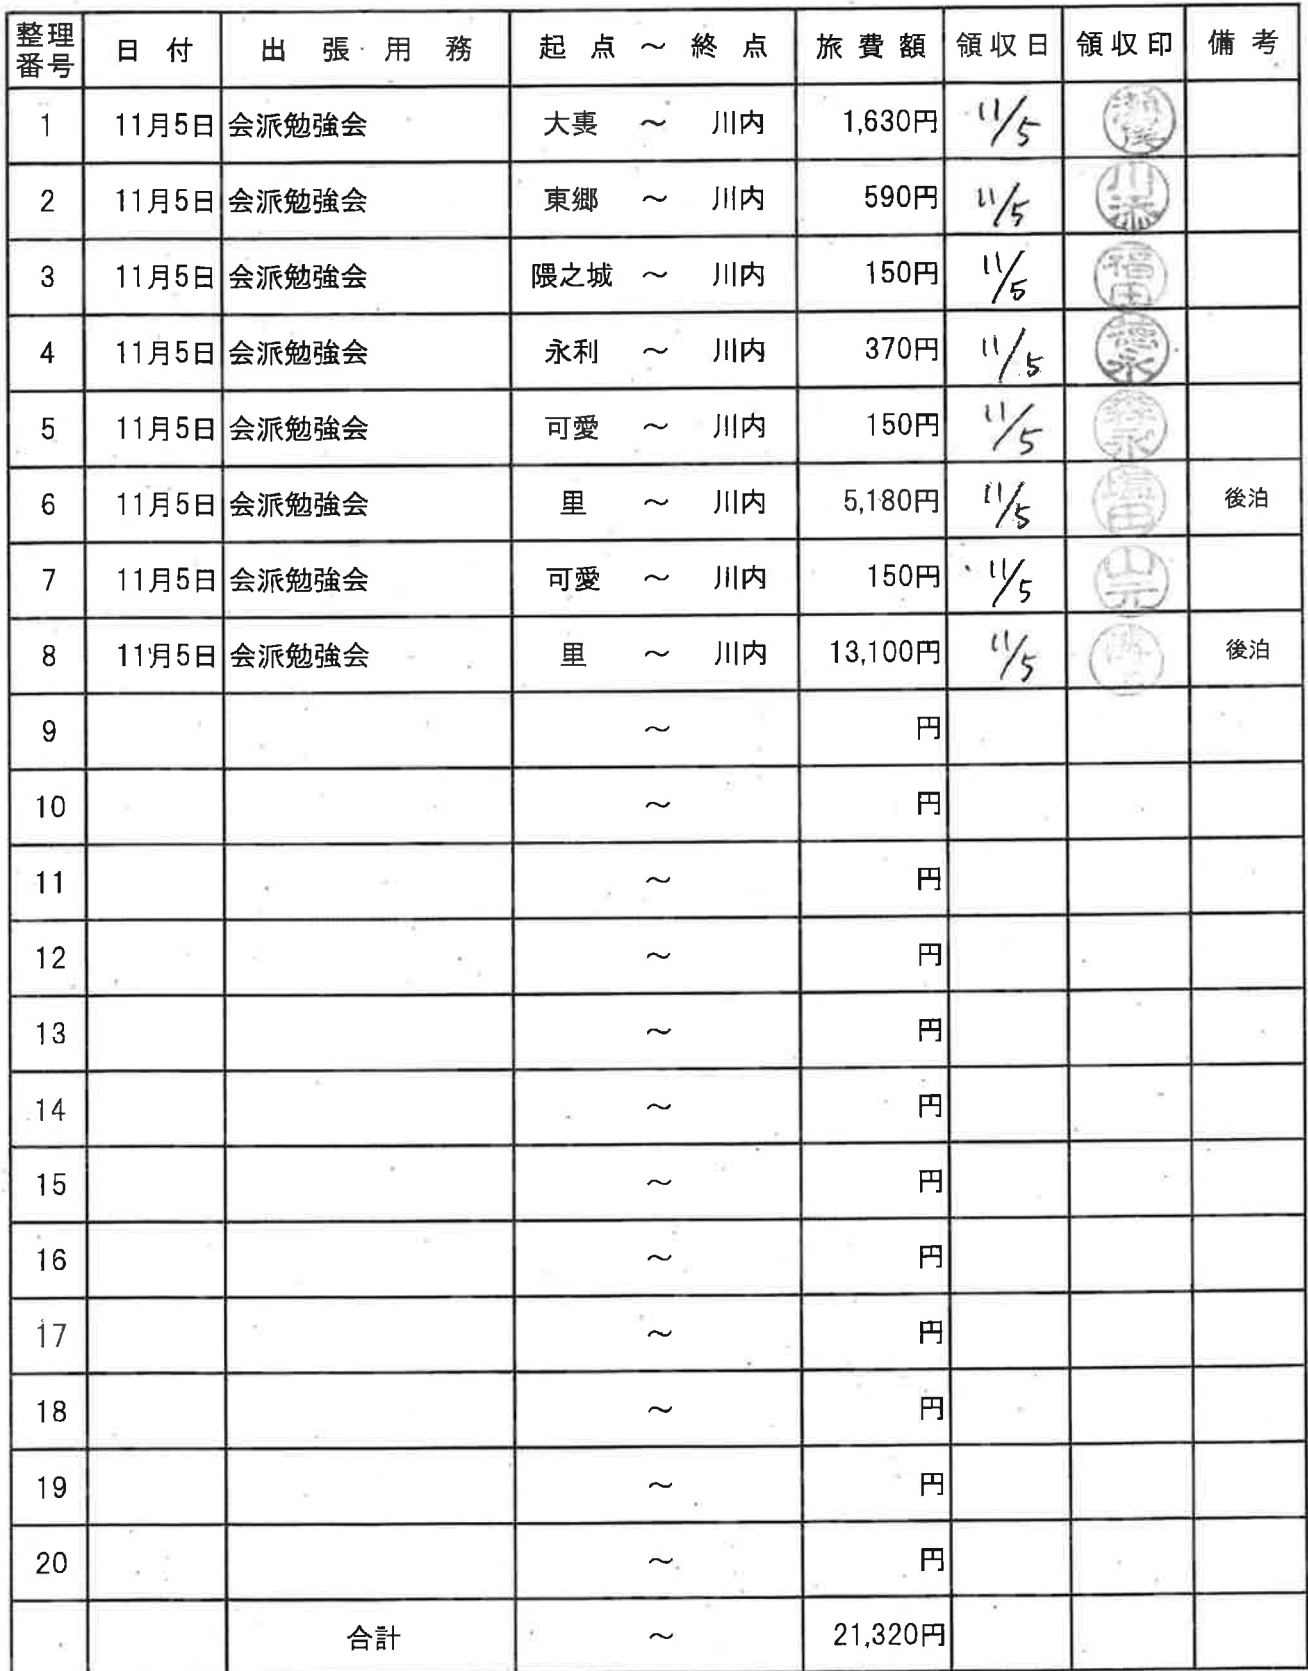 整理番号 日付 出張用務 起点～終点 旅費額 領収日 領収印 備考
1 11月5日 会派勉強会 大裏 ～ 川内 1,630円 11/5
2 11月5日 会派勉強会 東郷 ～ 川内 590円 11/5 川添
3 11月5日 会派勉強会 隈之城 ～ 川内 150円 11/5 福田
4 11月5日 会派勉強会 永利 ～ 川内 370円 11/5 德永
5 11月5日 会派勉強会 可愛 ～ 川内 150円 11/5
6 11月5日 会派勉強会 里 ～ 川内 5,180円 11/5 後泊
7 11月5日 会派勉強会 可愛 ～ 川内 150円 11/5 山元
8 11月5日 会派勉強会 里 ～ 川内 13,100円 11/5 後泊
9 ～ 円
10 ～ 円
11 ～ 円
12 ～ 円
13 ～ 円
14 ～ 円
15 ～ 円
16 ～ 円
17 ～ 円
18 ～ 円
19 ～ 円
20 ～ 円
合計 ～ 21,320円